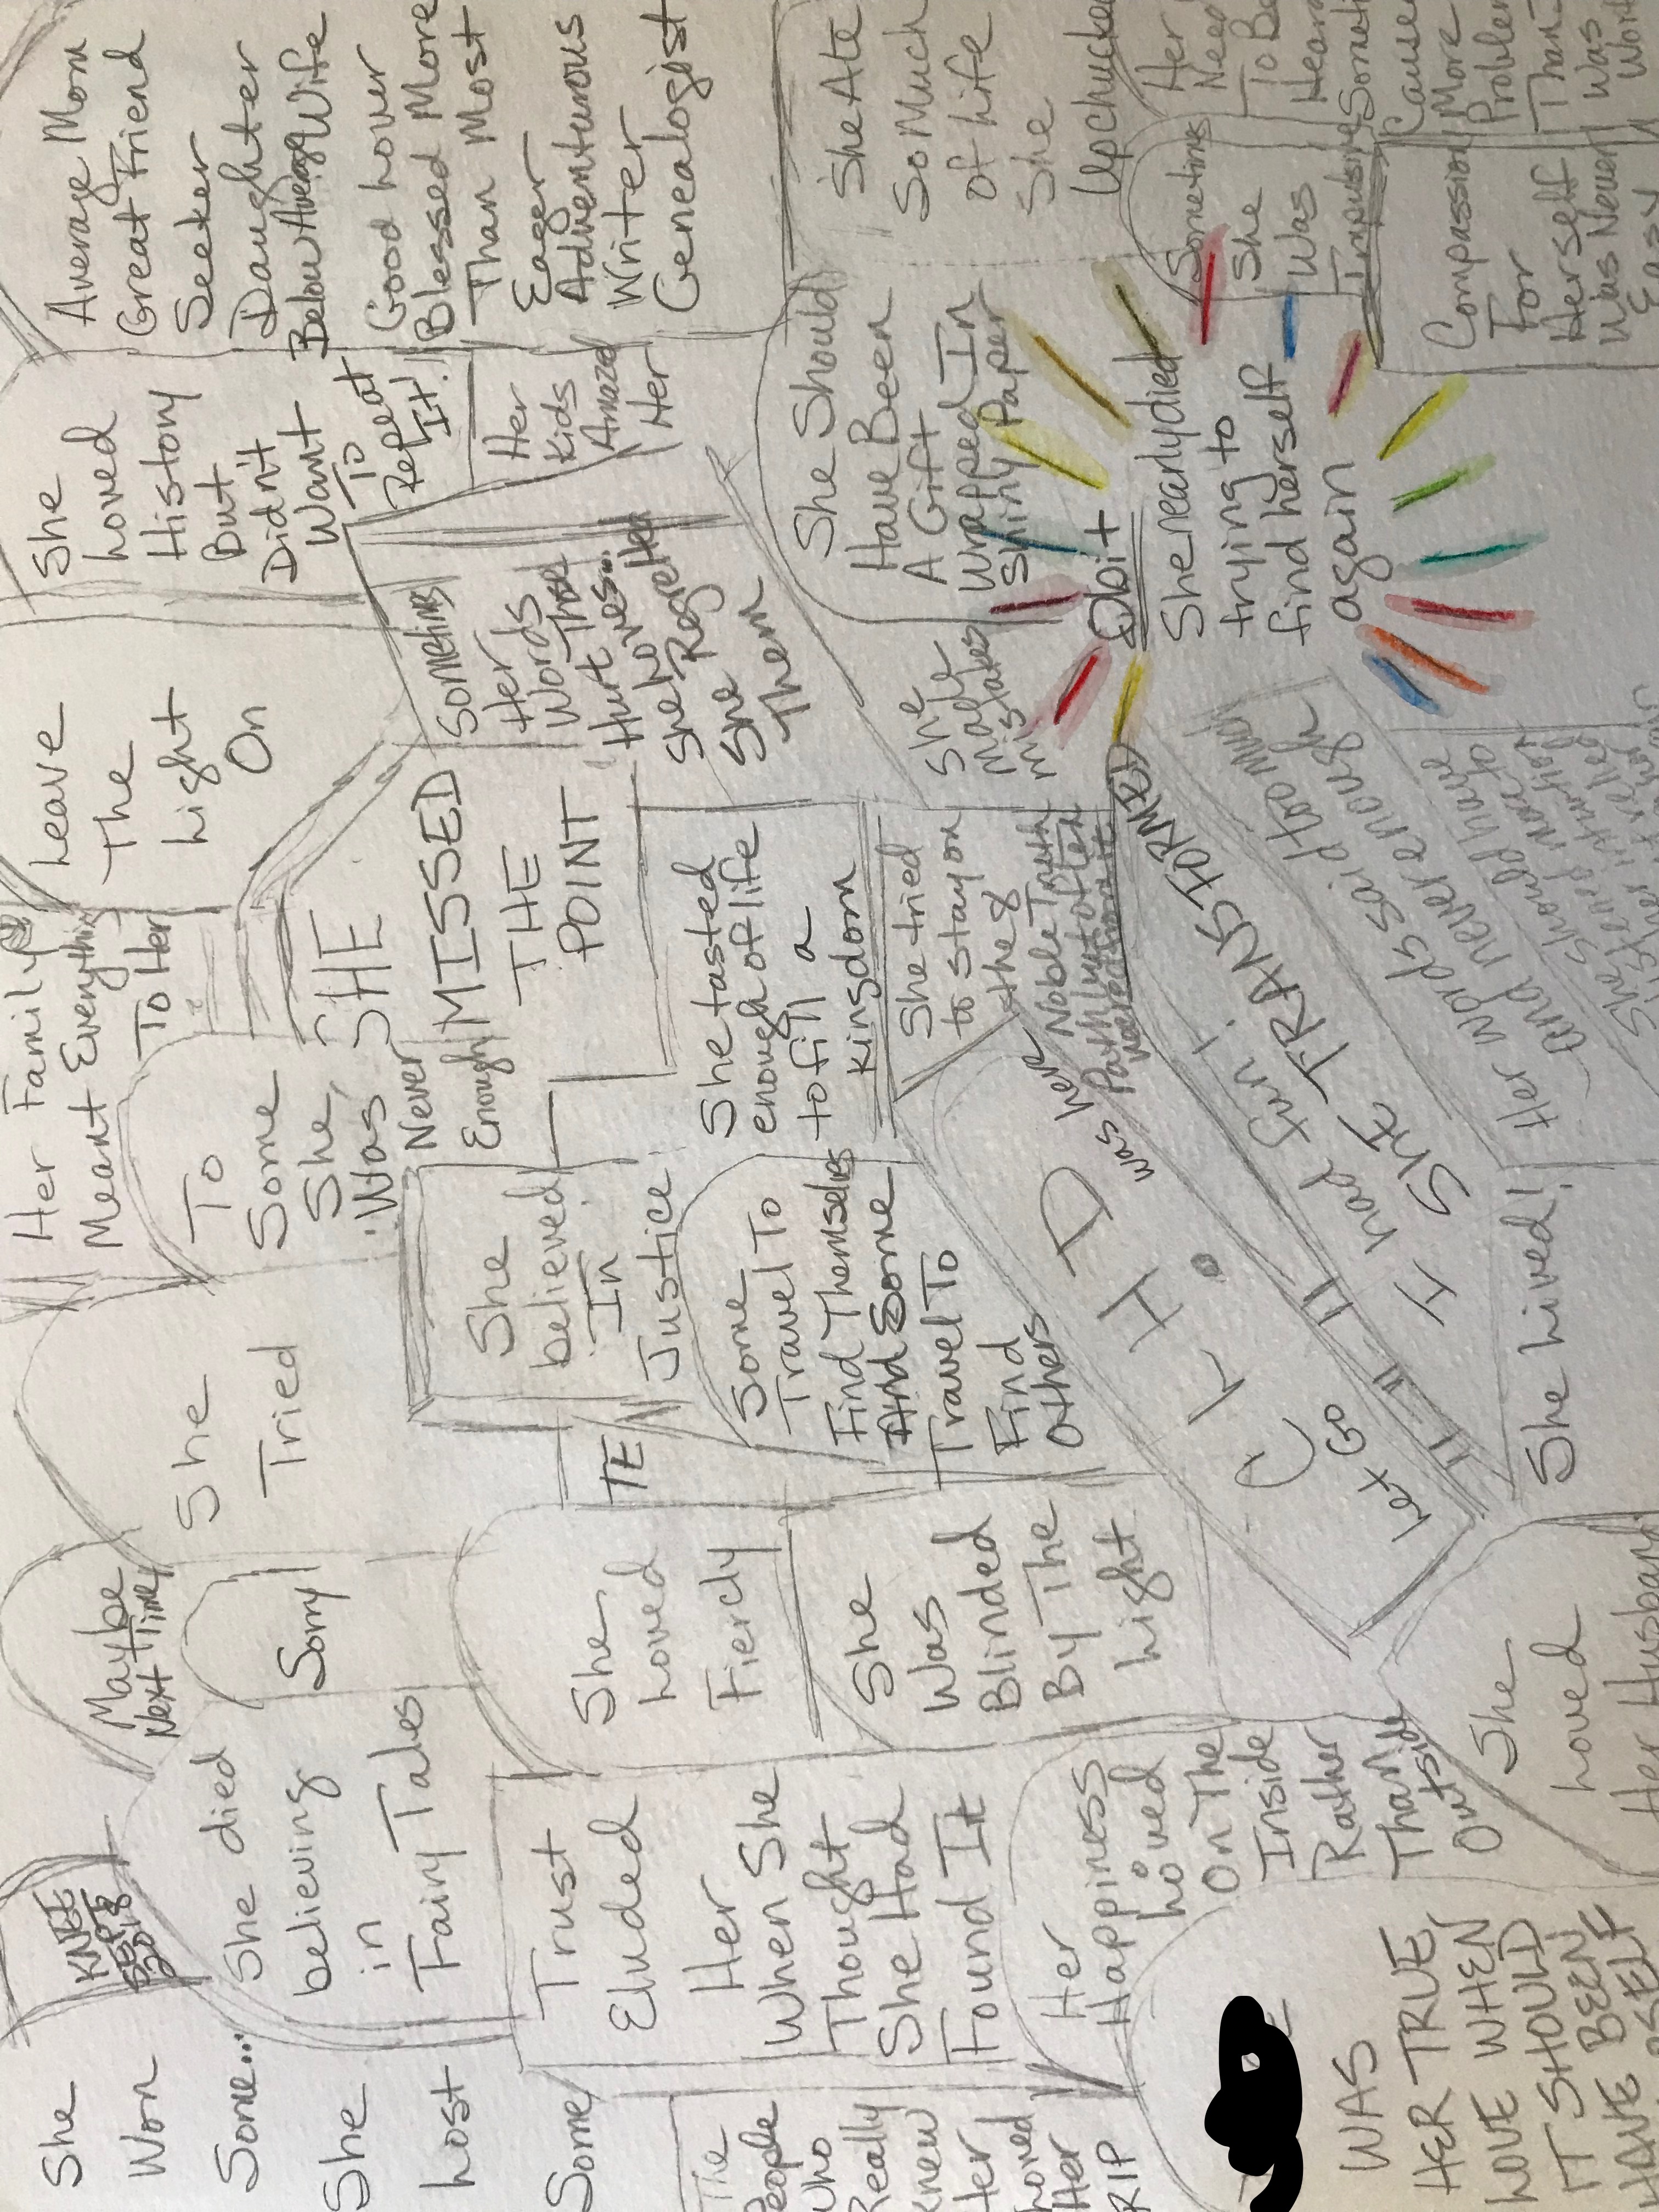 She
Won
Some...
She
Lost
Some
KNEE
SEPT
2019
She died
believing
in
Fairy Tales
Maybe
Next Time
Sorry
She
Tried
Her Family
Meant Everything
To Her
To
Some
She
Was
Never
Enough
Leave
The
Light
On
She
Loved
History
But
Didn't
Want
To
Repeat
It!
Average Mom
Great Friend
Seeker
Daughter
Below Average Wife
Good Lover
Blessed More
Than Most
Eager
Adventurous
Writer
Genealogist
Her
Kids
Amazed
Her
SHE
MISSED
THE
POINT
Sometimes
Her
Words
Hurt Those
She Loves...
She Regrets
She
Them
Trust
Eluded
Her
When She
Thought
She Had
Found It
She
Loved
Fiercly
She
Was
Blinded
By The
Light
TE
She
believed
In
Justice
Some
Travel To
Find Themselves
And Some
Travel To
Find
Others
She tasted
enough of life
to fill a
Kingdom
She tried
to stay on
the 8
Noble Truth
Path but often
She
made
mistakes
She Should
Have Been
A Gift
Wrapped In
Shiny Paper
She Ate
So Much
Of Life
She
Upchucked
Sometimes
She
Was
Impulsive
Her
Need
To Be
Heard
Sometimes
Caused
More
Problems
Than
Was
Worth
Compassion
For
Herself
Was Never
Easy
Obit
She nearly died
trying to
find herself
again
The
People
Who
Really
Knew
Her
Loved
Her
RIP
Her
Happiness
Loved
On The
Inside
Rather
Than
Outside
WAS
HER TRUE
LOVE WHEN
IT SHOULD
HAVE BEEN
Let Go
C. L. H. D
was here
had fun!
She
TRANSFORMED
She Lived!
Her words said too much
and never enough
She should have
She
Loved
Her Husband